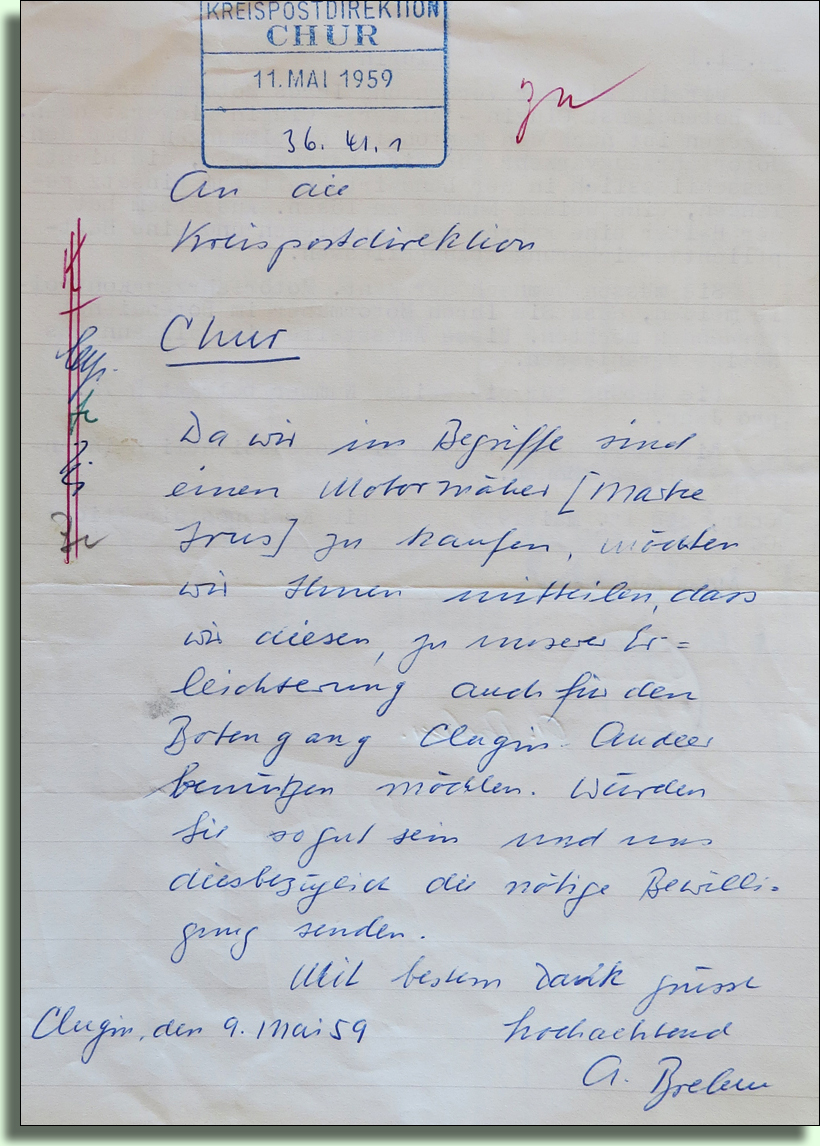 KREISPOSTDIREKTION
CHUR
11. MAI 1959
36. 41. 1
An die
Kreispostdirektion
Chur
Da wir im Begriffe sind
einen Motormäher [Marke
Irus] zu kaufen, möchten
wir Ihnen mitteilen, dass
wir diesen, zu unserer Er=
leichterung auch für den
Botengang Clugin - Andeer
benützen möchten. Würden
Sie so gut sein und uns
diesbezüglich die nötige Bewilli-
gung senden.
Mit bestem Dank grüsst
Clugin, den 9. Mai 59
hochachtend
A.